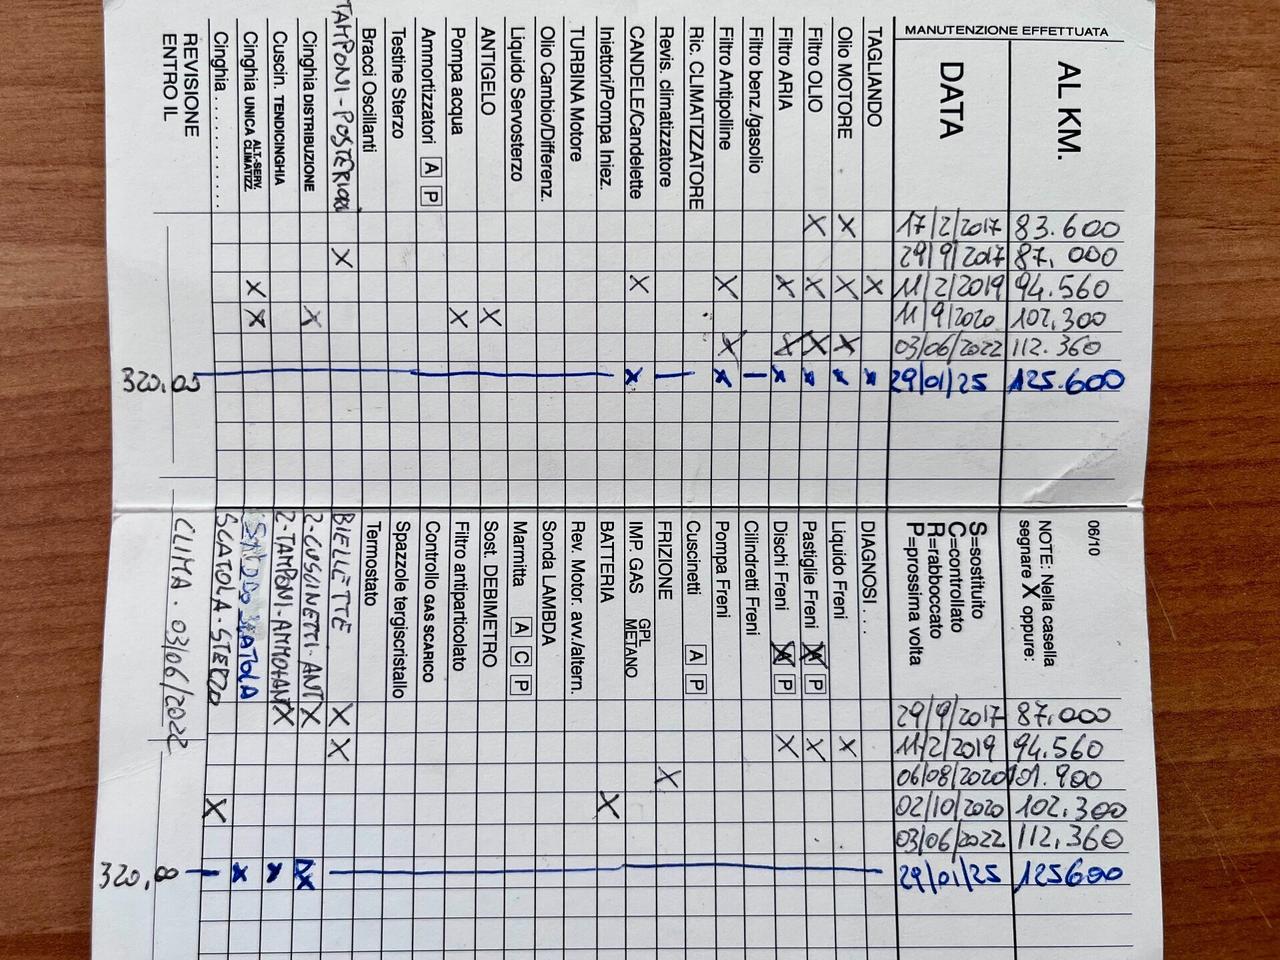 MANUTENZIONE EFFETTUATA
AL KM.
DATA
TAGLIANDO
Olio MOTORE
Filtro OLIO
Filtro ARIA
Filtro benz./gasolio
Filtro Antipolline
Ric. CLIMATIZZATORE
Revis. climatizzatore
CANDELE/Candelette
Iniettori/Pompa Iniez.
TURBINA Motore
Olio Cambio/Differenz.
Liquido Servosterzo
ANTIGELO
Pompa acqua
Ammortizzatori A P
Testine Sterzo
Bracci Oscillanti
TAMPONI-POSTERIORI
Cinghia DISTRIBUZIONE
Cuscin. TENDICINGHIA
Cinghia UNICA ALT.-SERV. CLIMATIZZ.
Cinghia . . . . . . . . . . .
REVISIONE
ENTRO IL
83.600 17/2/2017 X X
87.000 29/9/2017 X
94.560 11/2/2019 X X X X X X X
102.300 11/9/2020 X X X X
112.360 03/06/2022 X X X X
125.600 29/01/25 x x x x x x
320,00
06/10
NOTE: Nella casella
segnare X oppure:
S=sostituito
C=controllato
R=rabboccato
P=prossima volta
DIAGNOSI . . .
Liquido Freni
Pastiglie Freni A P
Dischi Freni A P
Cilindretti Freni
Pompa Freni
Cuscinetti A P
FRIZIONE
IMP. GAS GPL METANO
BATTERIA
Rev. Motor. avv./altern.
Sonda LAMBDA
Marmitta A C P
Sost. DEBIMETRO
Filtro antiparticolato
Controllo GAS SCARICO
Spazzole tergiscristallo
Termostato
BIELLETTE
2-CUSCINETTI-ANT
2-TAMPONI-AMM-ANT
SCATOLA
SCATOLA-STERZO
CLIMA. 03/06/2022
87.000 29/9/2017 X X X
94.560 11/2/2019 X X X X
101.900 06/08/2020 X
102.300 02/10/2020 X X
112,360 03/06/2022
125600 29/01/25 x x x
320,00